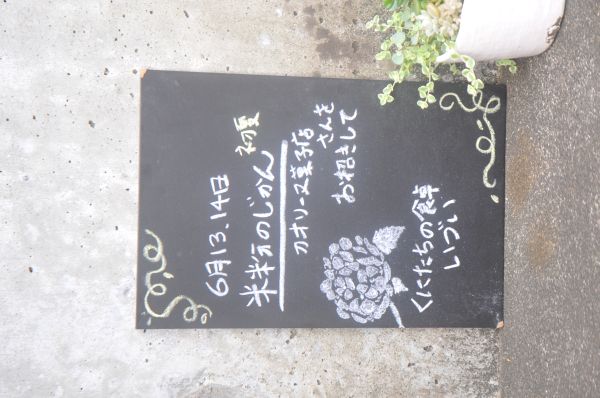 6月13.14日
米粉のじかん 初夏
カオリーヌ菓子店
さんを
お招きして
くにたちの食卓
いづい